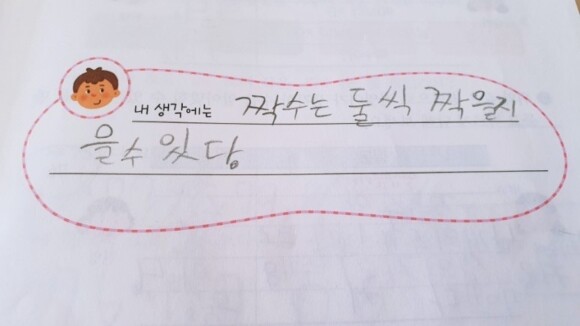 내 생각에는 짝수는 둘씩 짝을지
을수 있당